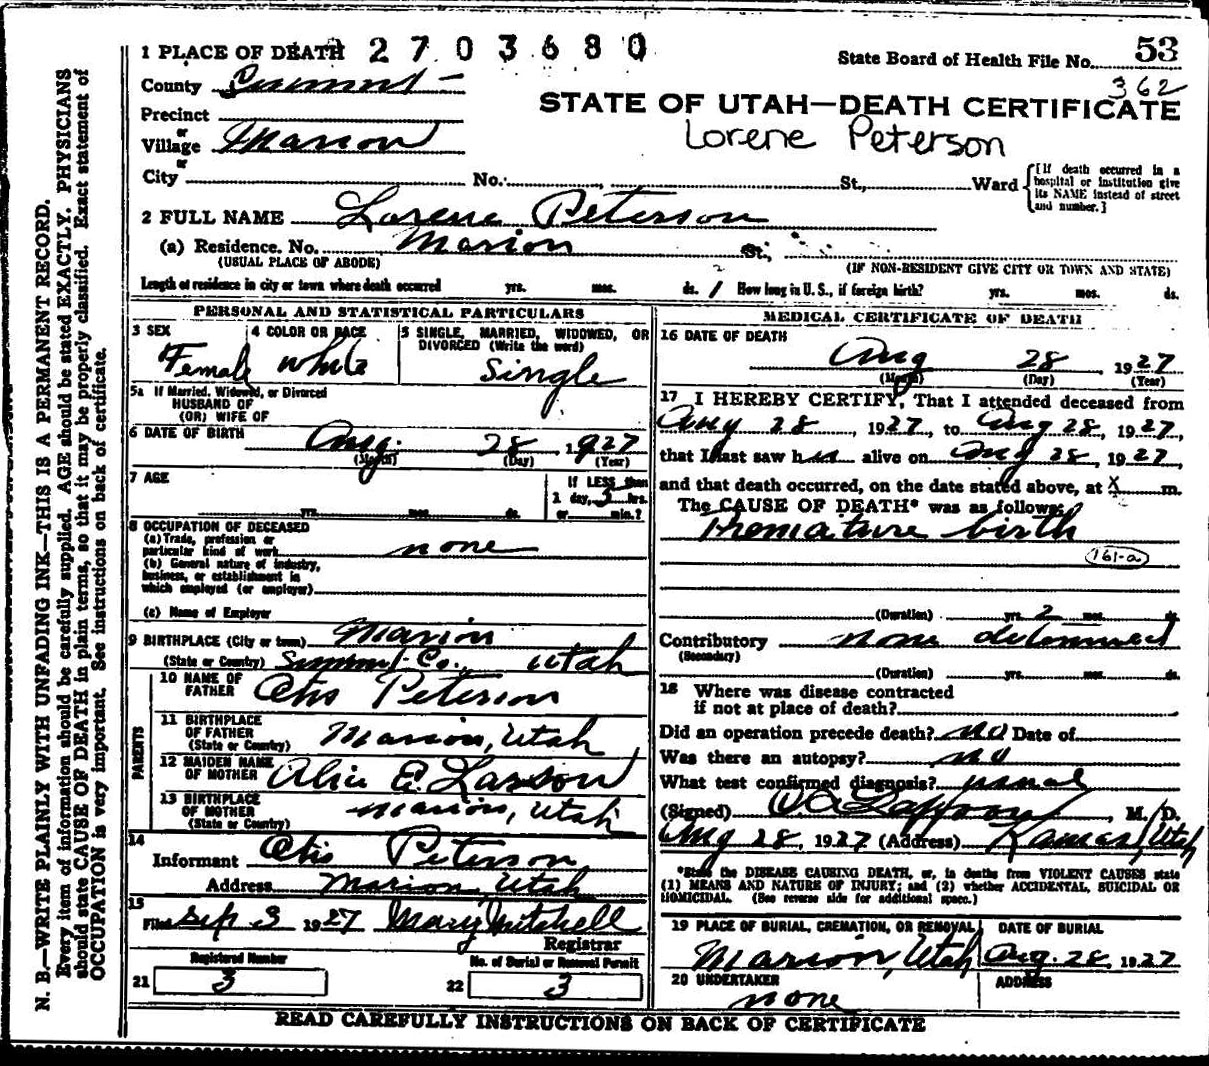 1 PLACE OF DEATH 2703680
State Board of Health File No. 53
362
County Summit
STATE OF UTAH—DEATH CERTIFICATE
Precinct
or
Village Marion
Lorene Peterson
or
City No. St., Ward
[If death occurred in a
hospital or institution give
its NAME instead of street
and number.]
2 FULL NAME Lorene Peterson
(a) Residence. No. Marion St.,
(USUAL PLACE OF ABODE) (IF NON-RESIDENT GIVE CITY OR TOWN AND STATE)
Length of residence in city or town where death occurred yrs. mos. ds. How long in U.S., if foreign birth? yrs. mos. ds.
PERSONAL AND STATISTICAL PARTICULARS
3 SEX 4 COLOR OR RACE 5 SINGLE, MARRIED, WIDOWED, OR
DIVORCED (Write the word)
Female white Single
5a If Married, Widowed, or Divorced
HUSBAND OF
(OR) WIFE OF
6 DATE OF BIRTH Aug. 28 1927
(Month) (Day) (Year)
7 AGE If LESS than
1 day, hrs.
yrs. mos. ds. or min.?
8 OCCUPATION OF DECEASED
(a) Trade, profession or
particular kind of work none
(b) General nature of industry,
business, or establishment in
which employed (or employer)
(c) Name of Employer
9 BIRTHPLACE (City or town) Marion
(State or Country) Summit Co., Utah
PARENTS
10 NAME OF
FATHER Otis Peterson
11 BIRTHPLACE
OF FATHER
(State or Country) Marion, Utah
12 MAIDEN NAME
OF MOTHER Alice E. Larson
13 BIRTHPLACE
OF MOTHER
(State or Country) Marion, Utah
14
Informant Otis Peterson
Address Marion, Utah
15
Filed Sep 3 1927 Mary Mitchell
Registrar
Registered Number No. of Burial or Removal Permit
21 3 22 3
MEDICAL CERTIFICATE OF DEATH
16 DATE OF DEATH
Aug 28 1927
(Month) (Day) (Year)
17 I HEREBY CERTIFY, That I attended deceased from
Aug 28, 1927, to Aug 28, 1927,
that I last saw her alive on Aug 28, 1927,
and that death occurred, on the date stated above, at X m.
The CAUSE OF DEATH* was as follows:
Premature birth
161-a
(Duration) yrs. 2 mos. ds.
Contributory none determined
(Secondary)
(Duration) yrs. mos. ds.
18 Where was disease contracted
if not at place of death?
Did an operation precede death? no Date of
Was there an autopsy? no
What test confirmed diagnosis? usual
(Signed) M. D.
Aug 28, 1927 (Address) Kamas, Utah
*State the DISEASE CAUSING DEATH, or, in deaths from VIOLENT CAUSES state
(1) MEANS AND NATURE OF INJURY; and (2) whether ACCIDENTAL, SUICIDAL OR
HOMICIDAL. (See reverse side for additional space.)
19 PLACE OF BURIAL, CREMATION, OR REMOVAL DATE OF BURIAL
Marion, Utah Aug. 28, 1927
20 UNDERTAKER ADDRESS
none
READ CAREFULLY INSTRUCTIONS ON BACK OF CERTIFICATE
N. B.—WRITE PLAINLY WITH UNFADING INK—THIS IS A PERMANENT RECORD.
Every item of information should be carefully supplied. AGE should be stated EXACTLY. PHYSICIANS
should state CAUSE OF DEATH in plain terms, so that it may be properly classified. Exact statement of
OCCUPATION is very important. See instructions on back of certificate.